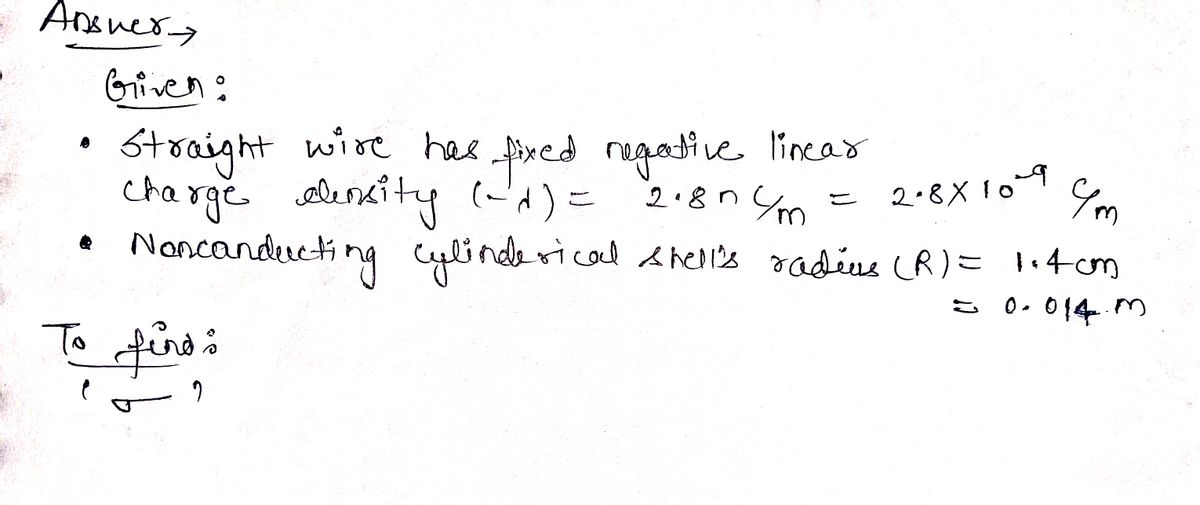 Answer →
Given :
• Straight wire has fixed negative linear
charge density (-λ) = 2.8 n C/m = 2.8 X 10⁻⁹ C/m
• Noncanducting cylinderical shell's radius (R) = 1.4 cm
= 0.014 m
To find :
' σ '